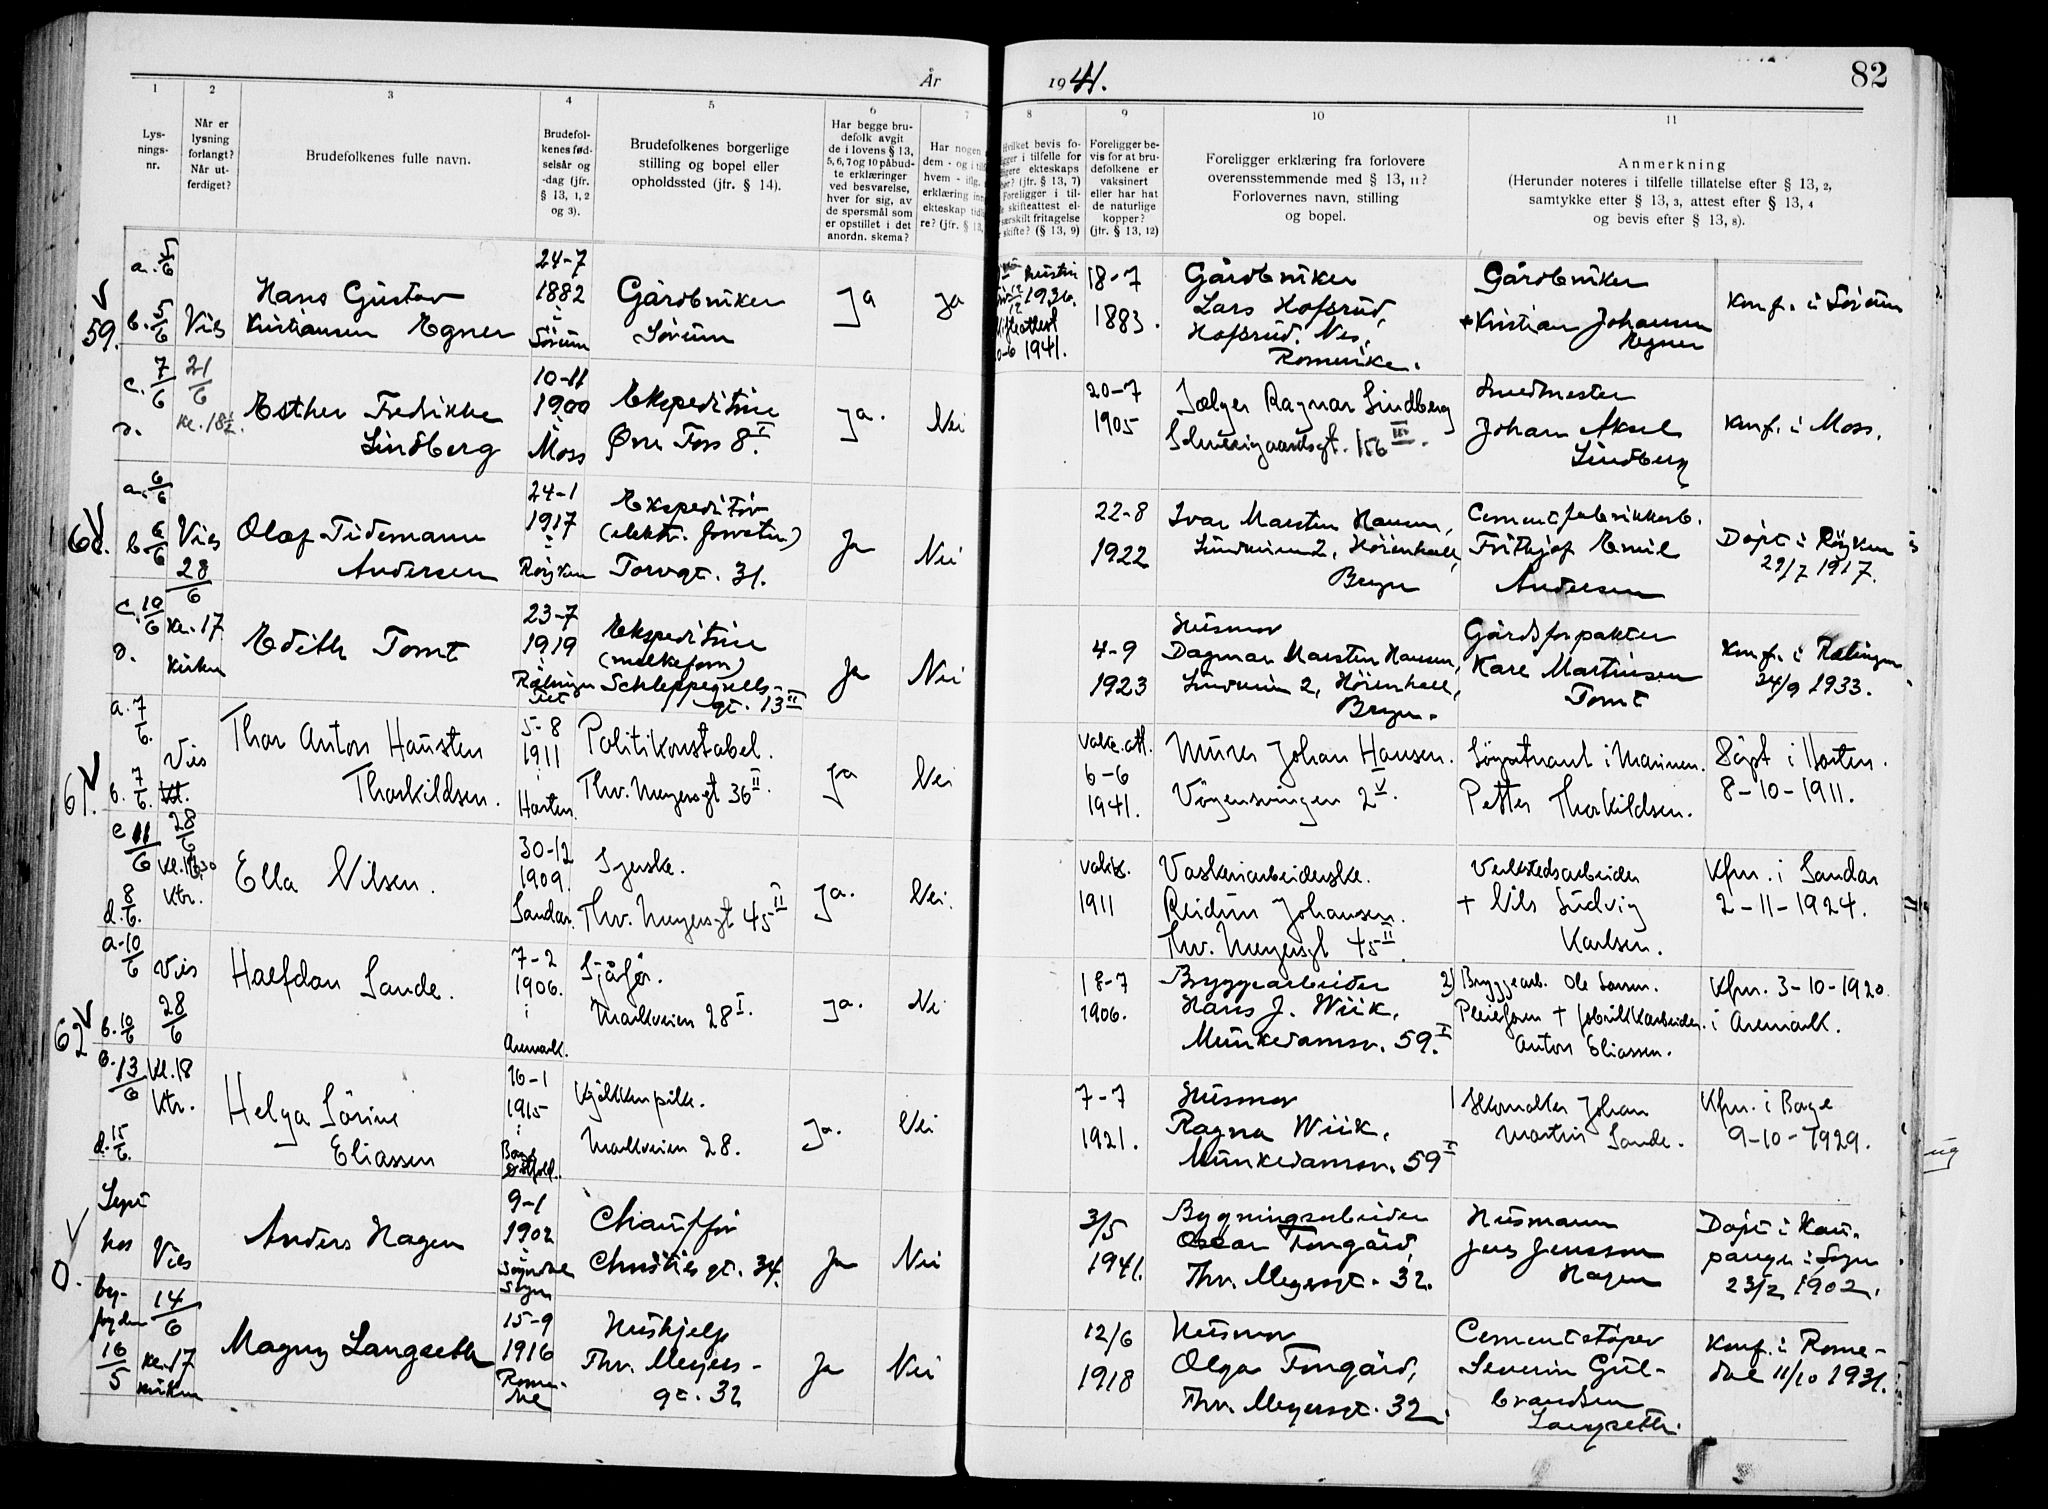 År
1941.
82
1
2
3
4
5
6
7
8
9
10
11
Lys-
nings-
nr.
Når er
lysning
forlangt?
Når ut-
ferdiget?
Brudefolkenes fulle navn.
Brudefol-
kenes fød-
selsår og
-dag (jfr.
§ 13, 1, 2
og 3).
Brudefolkenes borgerlige
stilling og bopel eller
opholdssted (jfr. § 14).
Har begge bru-
defolk avgit
de i lovens § 13,
5, 6, 7 og 10 påbud-
te erklæringer
ved besvarelse,
hver for sig, av
de spørsmål som
er opstillet i det
anordn. skema?
Har nogen
dem - og i
hvem - iflg.
erklæring
ekteskap
re? (jfr. § 13,
Hvilket bevis fo-
i tilfelle for
ekteskaps
(jfr. § 13, 7)
Foreligger i til-
skifteattest el-
særskilt fritagelse
skifte? (§ 13, 9)
Foreligger be-
vis for at bru-
defolkene er
vaksinert
eller har hat
de naturlige
kopper?
(jfr. § 13, 12)
Foreligger erklæring fra forlovere
overensstemmende med § 13, 11?
Forlovernes navn, stilling
og bopel.
Anmerkning
(Herunder noteres i tilfelle tillatelse efter § 13, 2,
samtykke efter § 13, 3, attest efter § 13, 4
og bevis efter § 13, 8).
59.
a. 5/6
b. 5/6
Vies
Hans Gustav
Kristiansen Egner
24-7
1882
i
Sørum
Gårdbruker
Sørum
Ja
Ja
1936.
1941.
18-7
1883.
Gårdbruker
Lars Hofsrud,
Hofsrud, Nes,
Romerike.
Gårdbruker
+ Kristian Johansen
Egner
Konf. i Sørum
c. 7/6
d.
21/6
kl. 18½.
Esther Fredrikke
Lindberg
10-11
1900
i
Moss
Ekspeditrise
Øvre Foss 8 I.
Ja.
Nei
20-7
1905
Ragnar Lindberg
Schweigaardsgt. 156 III.
Smedmester
Johan Aksel
Lindberg
Konf. i Moss.
60.
a. 6/6
b. 6/6
Vies
28/6
Olaf Tidemann
Andersen
24-1
1917
i
Røyken
Ekspeditør
(elektr. forretn.)
Torvgt. 31.
Ja
Nei
22-8
1922
Ivar Marsten Hansen,
2,
Bryn
Cementfabrikkarb.
Frithjof Emil
Andersen
Døpt i Røyken
29/7 1917.
c. 10/6
d.
kl. 17
Kirken
Edith Tomt
23-7
1919
i
Rælingen
Ekspeditrise
(melkeforr.)
Schleppegrells-
gt. 13 II
Ja
Nei
4-9
1923
Husmor
Dagmar Marsten Hansen,
2,
Bryn.
Gårdsforpakter
Kare Martinsen
Tomt
Konf. i Rælingen
24/9 1933.
61.
a. 7/6.
b. 7/6.
Vies
28/6
Thor Anton Hausten
Thorkildsen.
5-8
1911
i
Horten.
Politikonstabel.
Thv. Meyersgt 36 II.
Ja
Nei
Vakc. att.
6-6
1941.
Murer Johan Hansen.
Vøyensvingen 2 V.
i Marinen.
Petter Thorkildsen.
Døpt i Horten.
8-10-1911.
c 11/6
d. 8/6.
Ktr.
Ella Nilsen.
30-12
1909.
Sandar.
Syerske.
Thv. Meyersgt 45 II
Ja.
Nei.
1911
Vaskeriarbeiderske.
Reidun Johansen.
Thv. Meyersgt 45 II.
Verkstedsarbeider
+ Nils Ludvig
Karlsen.
Kfm. i Sandar
2-11-1924.
62
a. 10/6
b. 10/6
Vies
28/6
Halfdan Sande.
7-2
1906.
i
Aremark.
Sjåfør.
Markveien 28 I.
Ja.
Nei
18-7
1906.
Bryggearbeider
Hans J. Wiik,
Munkedamsv. 59. I
2) Bryggearb. Ole Larsen.
Pleiefaren + fabrikkarbeider
Anton Eliassen.
Kfm. 3-10-1920
i Aremark.
c. 13/6
d. 15/6.
Kl. 18
Ktr.
Helga Sørine
Eliassen
16-1
1915
i
Borge
Østfold.
Kjøkkenpike.
Markveien 28.
Ja.
Nei
7-7
1921.
Husmor
Ragna Wiik.
Munkedamsv. 59 I
Skomaker Johan
Martin Sande.
Kfm. i Borge
9-10-1929.
0.
Lyst
hos
by-
fogden
16/5
Vies
14/6
kl. 17
kirken
Anders Hagen
9-1
1902
i
Sogndal
Sogn
Chauffør
Christiesgt. 34.
Ja
Nei
3/5
1941.
Bygningsarbeider
Oscar Tongård,
Thv. Meyersgt. 32.
Husmann
Jens Jensson
Hagen
Døpt i Kau-
panger i Sogn
23/2 1902.
Magny Langseth
15-9
1916
Rome-
dal
Hushjelp
Thv. Meyers-
gt. 32
Ja
Nei
12/6
1918
Husmor
Olga Tongård,
Thv. Meyersgt. 32.
Cementstøper
Severin Gul-
brandsen
Langseth.
Konf. i Rome-
dal 11/10 1931.